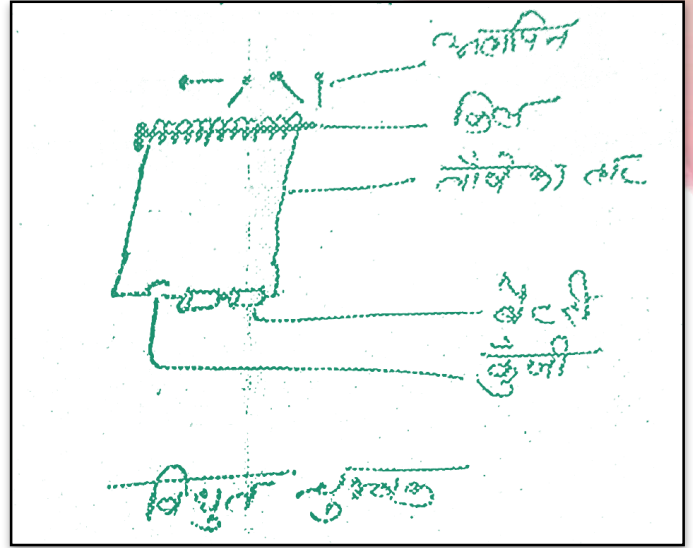 आलपिन
किल
तांबे का तार
बैटरी
कुंजी
विधुत चुम्बक